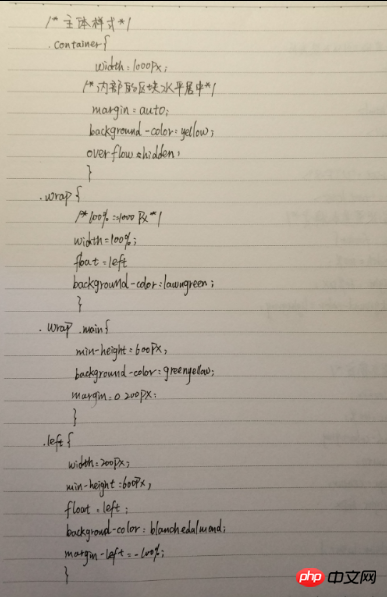 /* 主体样式*/
.container{
width: 1000px;
/*内部的区块水平居中*/
margin=auto;
background-color=yellow;
overflow=hidden;
}
.wrap{
/*100%=1000Px*/
width=100%;
float=left
background-color:lawngreen;
}
.wrap .main{
min-height=600px;
background-color=greenyellow;
margin=0 200px;
}
.left{
width=200px;
min-height=600px;
float=left;
background-color:blanchedalmond;
margin-left=-100%;
}
php 中文网